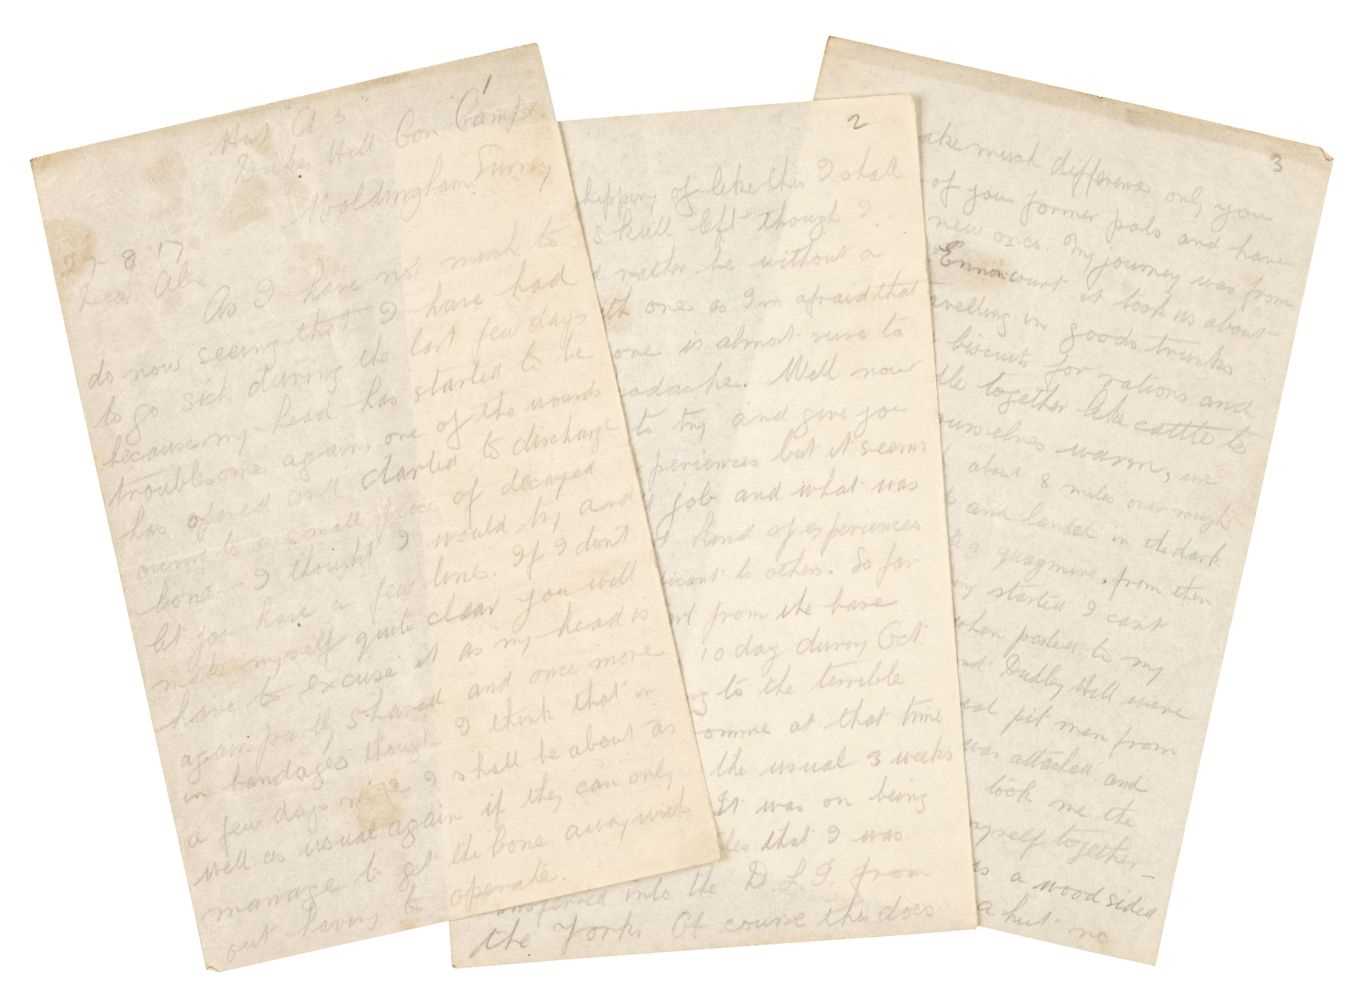 1
Hut A 3
Hill Con Camp
Woldingham Surrey
27 8 17
Dear Abe
As I have not much to
do now seeing that I have had
to go sick during the last few days
because my head has started to be
troublesome again, one of the wounds
has opened and started to discharge
owing to a small piece of decayed
bone I thought I would try and
let you have a few lines. If I dont
make myself quite clear you will
have to excuse it as my head is
again partly shaved and once more
in bandages though I think that in
a few days I shall be about as
well as usual again if they can only
manage to get the bone away with
out having to operate.
2
of like this I shall
skull left though I
rather be without a
one as Im afraid that
one is almost sure to
headache. Well now
to try and give you
periences but it seems
job and what was
kind of experiences
to others. So far
from the base
10 day during Oct
to the terrible
omme at that time
the usual 3 weeks
It was on being
that I was
ansferred into the D.L.I. from
the Yorks Of course this does
3
ake much difference only you
of your former pals and have
new ones. My journey was from
court it took us about
velling in goods trucks
biscuits for rations and
dle together like cattle to
ourselves warm, we
about 8 miles over rough
and landed in the dark
a quagmire, from then
started I cant
when posted to my
Dudley Hill were
pit men from
was attached and
took me the
myself together
as a wood sided
a hut no